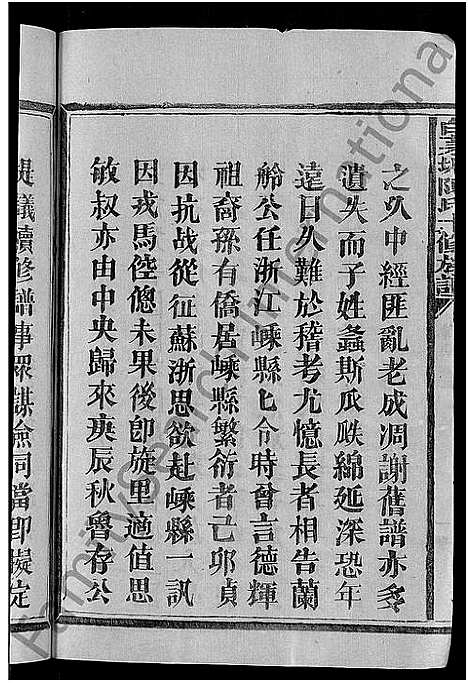 之久中經匪亂老成凋謝舊譜亦多
遺失而子姓螽斯瓜瓞綿延深恐年
遠日久難於稽考尤憶長者相告蘭
舲公任浙江嵊縣匕令時曾言德輝
祖裔孫有僑居嵊縣繁衍者己卯貞
因抗战從征蘇浙思欲赴嵊縣一訊
因戎馬倥傯未果後卽旋里適值思
敏叔亦由中央歸來庚辰秋魯存公
提議續修譜事眾謀僉同當即擬定
FamilySearch International